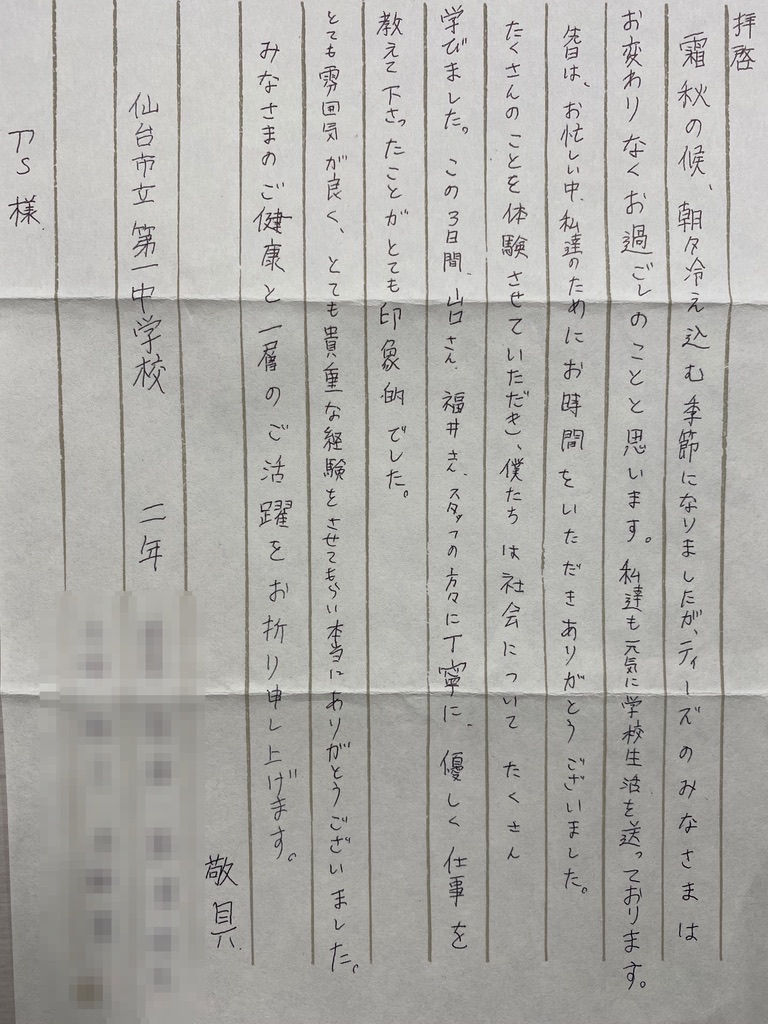 拝啓
霜秋の候、朝夕冷え込む季節になりましたが、ティーズのみなさまは
お変わりなくお過ごしのことと思います。私達も元気に学校生活を送っております。
先日は、お忙しい中、私達のためにお時間をいただきありがとうございました。
たくさんのことを体験させていただき、僕たちは社会についてたくさん
学びました。この3日間、山口さん、福井さん、スタッフの方々に丁寧に、優しく仕事を
教えて下さったことがとても印象的でした。
とても雰囲気が良く、とても貴重な経験をさせてもらい本当にありがとうございました。
みなさまのご健康と一層のご活躍をお祈り申し上げます。
敬具
仙台市立第一中学校 二年
TS様